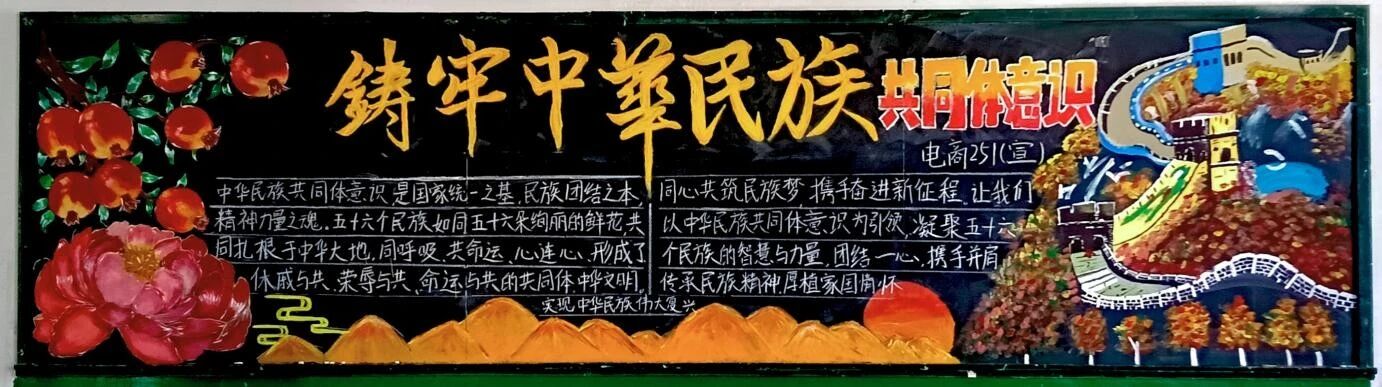 鑄牢中華民族共同体意识
电商251(宣)
中华民族共同体意识是国家统一之基,民族团结之本,
精神力量之魂。五十六个民族如同五十六朵绚丽的鲜花,共
同扎根于中华大地,同呼吸、共命运、心连心,形成了
休戚与共、荣辱与共、命运与共的共同体中华文明。
同心共筑民族梦,携手奋进新征程,让我们
以中华民族共同体意识为引领,凝聚五十六
个民族的智慧与力量,团结一心,携手并肩
传承民族精神厚植家国情怀
实现中华民族伟大复兴